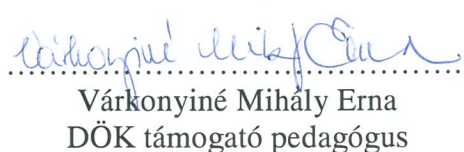 Várkonyiné Mihály Erna
Várkonyiné Mihály Erna
DÖK támogató pedagógus